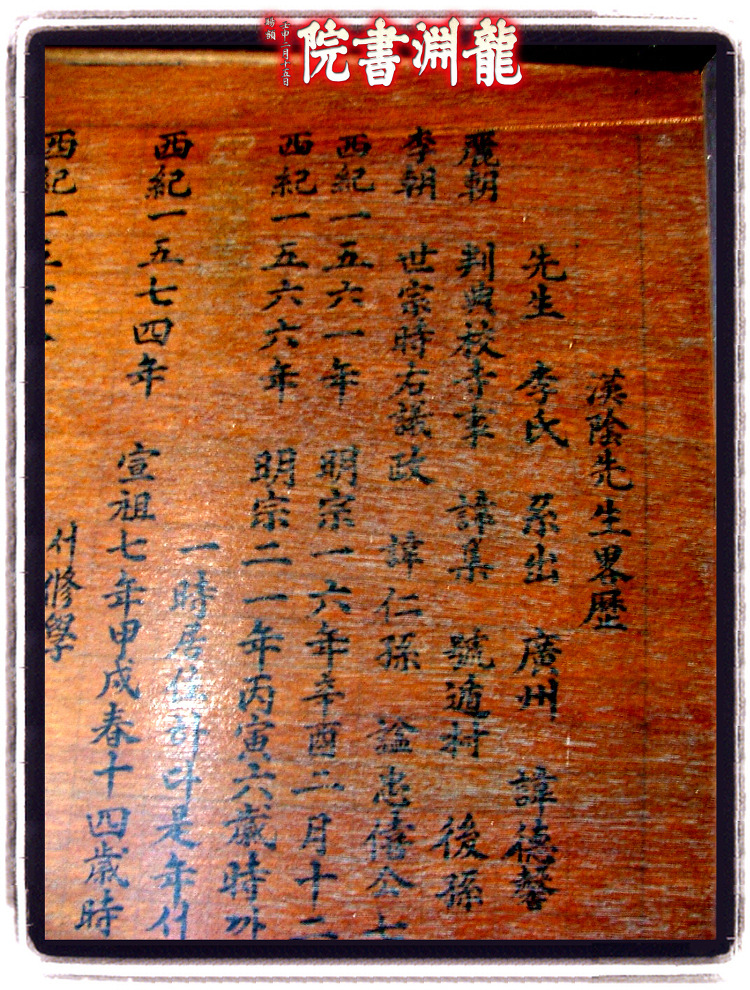 龍淵書院
壬申二月十五日
賜額
漢陰先生畧歷
先生 李氏 系出 廣州 諱德馨
麗朝 判典校寺事 諱集 號遁村 後孫
李朝 世宗時右議政 諱仁孫 諡忠僖公 七
西紀一五六一年 明宗一六年辛酉二月十二
西紀一五六六年 明宗二一年丙寅六歲時까
一時居 是年서
西紀一五七四年 宣祖七年甲戌春十四歲時
西紀一五七 서修學